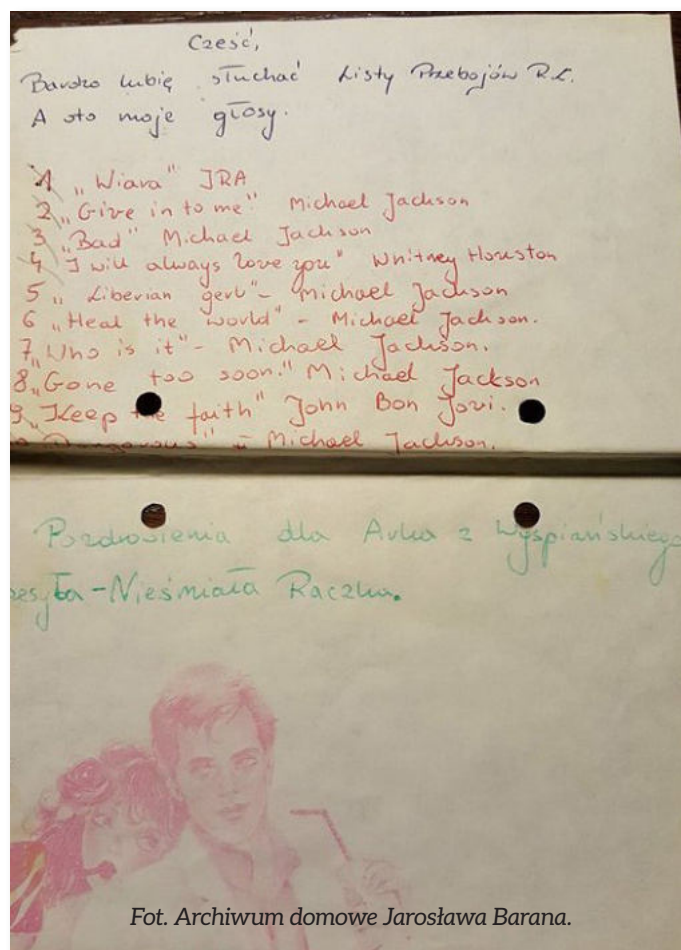 Cześć,
Bardzo lubię słuchać Listy Przebojów R.L.
A oto moje głosy.
1 „Wiara" IRA
2 „Give in to me" Michael Jackson
3 „Bad" Michael Jackson
4 „I will always love you" Whitney Houston
5 „Liberian gerl" - Michael Jackson
6 „Heal the world" - Michael Jackson.
7 „Who is it" - Michael Jackson.
8 „Gone too soon." Michael Jackson
9 „Keep the faith" John Bon Jovi.
Dangerous" - Michael Jackson.
Pozdrowienia dla Arka z Wyspiańskiego
esyła - Nieśmiała Raczka.
Fot. Archiwum domowe Jarosława Barana.